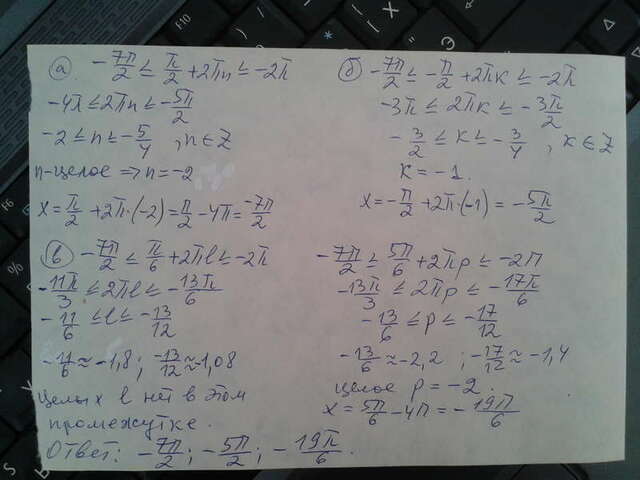 а) -7π/2 ≤ π/2 + 2πn ≤ -2π
-4π ≤ 2πn ≤ -5π/2
-2 ≤ n ≤ -5/4, n ∈ Z
n-целое => n = -2
x = π/2 + 2π·(-2) = π/2 - 4π = -7π/2
б) -7π/2 ≤ -π/2 + 2πк ≤ -2π
-3π ≤ 2πк ≤ -3π/2
-3/2 ≤ к ≤ -3/4, к ∈ Z
к = -1.
x = -π/2 + 2π·(-1) = -5π/2
в) -7π/2 ≤ π/6 + 2πl ≤ -2π
-11π/3 ≤ 2πl ≤ -13π/6
-11/6 ≤ l ≤ -13/12
-11/6 ≈ -1,8; -13/12 ≈ -1,08
целых l нет в этом
промежутке.
-7π/2 ≤ 5π/6 + 2πp ≤ -2π
-13π/3 ≤ 2πp ≤ -17π/6
-13/6 ≤ p ≤ -17/12
-13/6 ≈ -2,2; -17/12 ≈ -1,4
целое p = -2.
x = 5π/6 - 4π = -19π/6
Ответ: -7π/2; -5π/2; -19π/6.
F10
F6
%